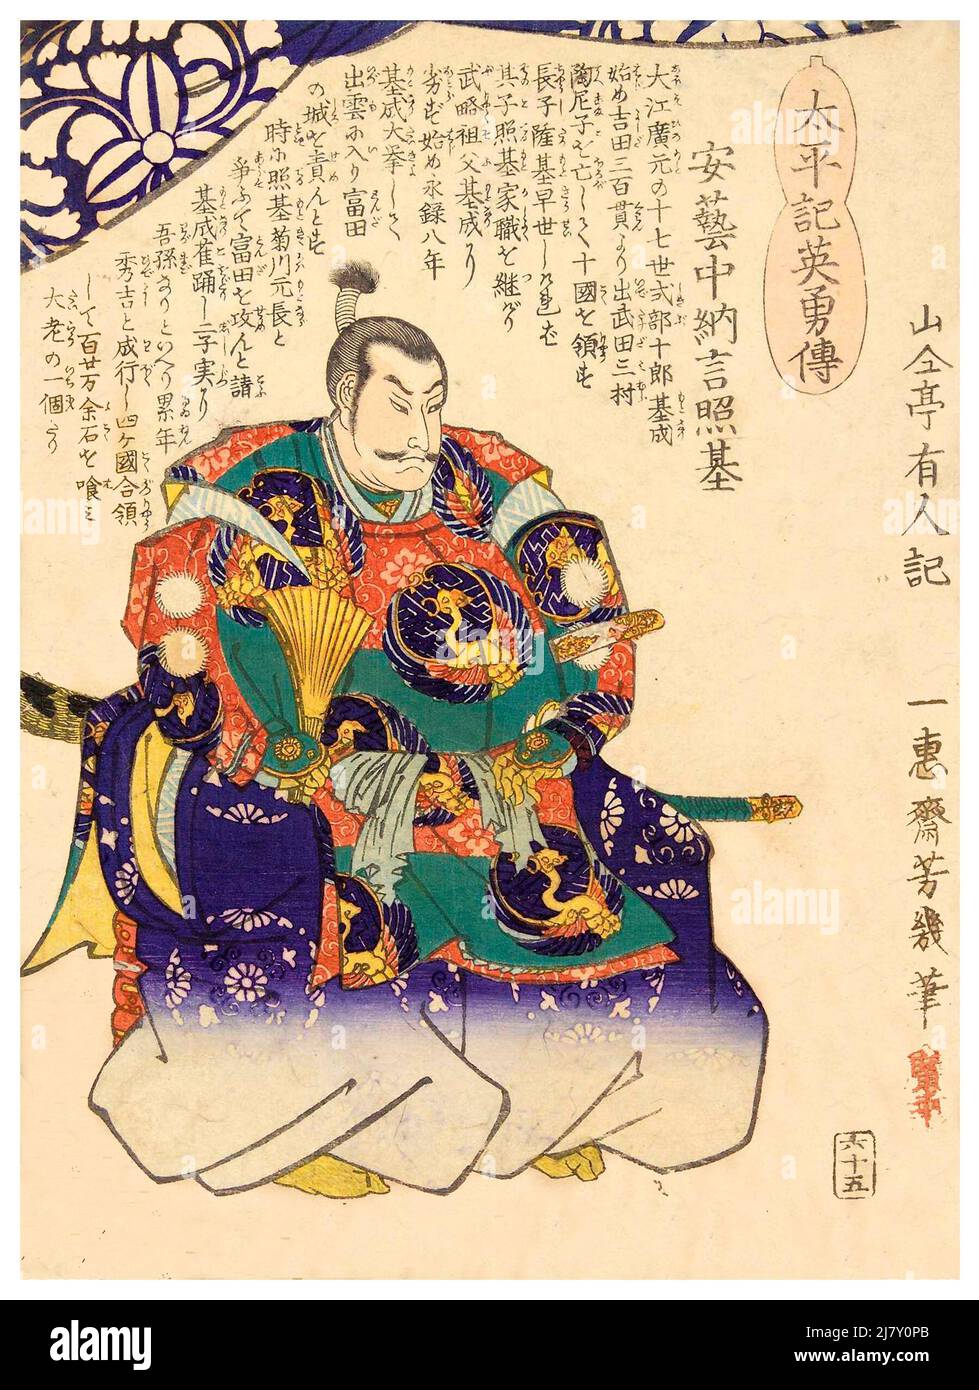 太平記英勇傳
山々亭有人記
一惠齋芳幾筆
安藝中納言照基
大江廣元の十七世式部十郎基成
始め吉田三百貫より出武田三村
陶尼子を亡して十國を領す
長子隆基早世しけれど
其子照基家職を継げり
武略祖父基成に
劣ず始め永録八年
基成大挙して
出雲に入り富田
の城を責んとす
時に照基菊川元長と
争ふて富田を攻んと諸
基成雀踊し二子実に
吾孫なりといへり累年
秀吉と成行し四ケ國合領
して一百廿万余石を喰み
大老の一個たり
六十五
alamy
Image ID: 2J7Y0PB
www.alamy.com